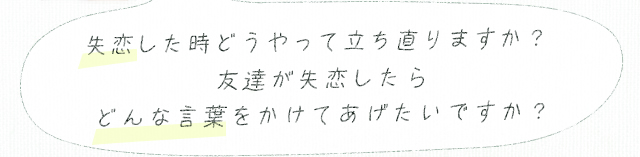 失恋した時どうやって立ち直りますか？
友達が失恋したら
どんな言葉をかけてあげたいですか？